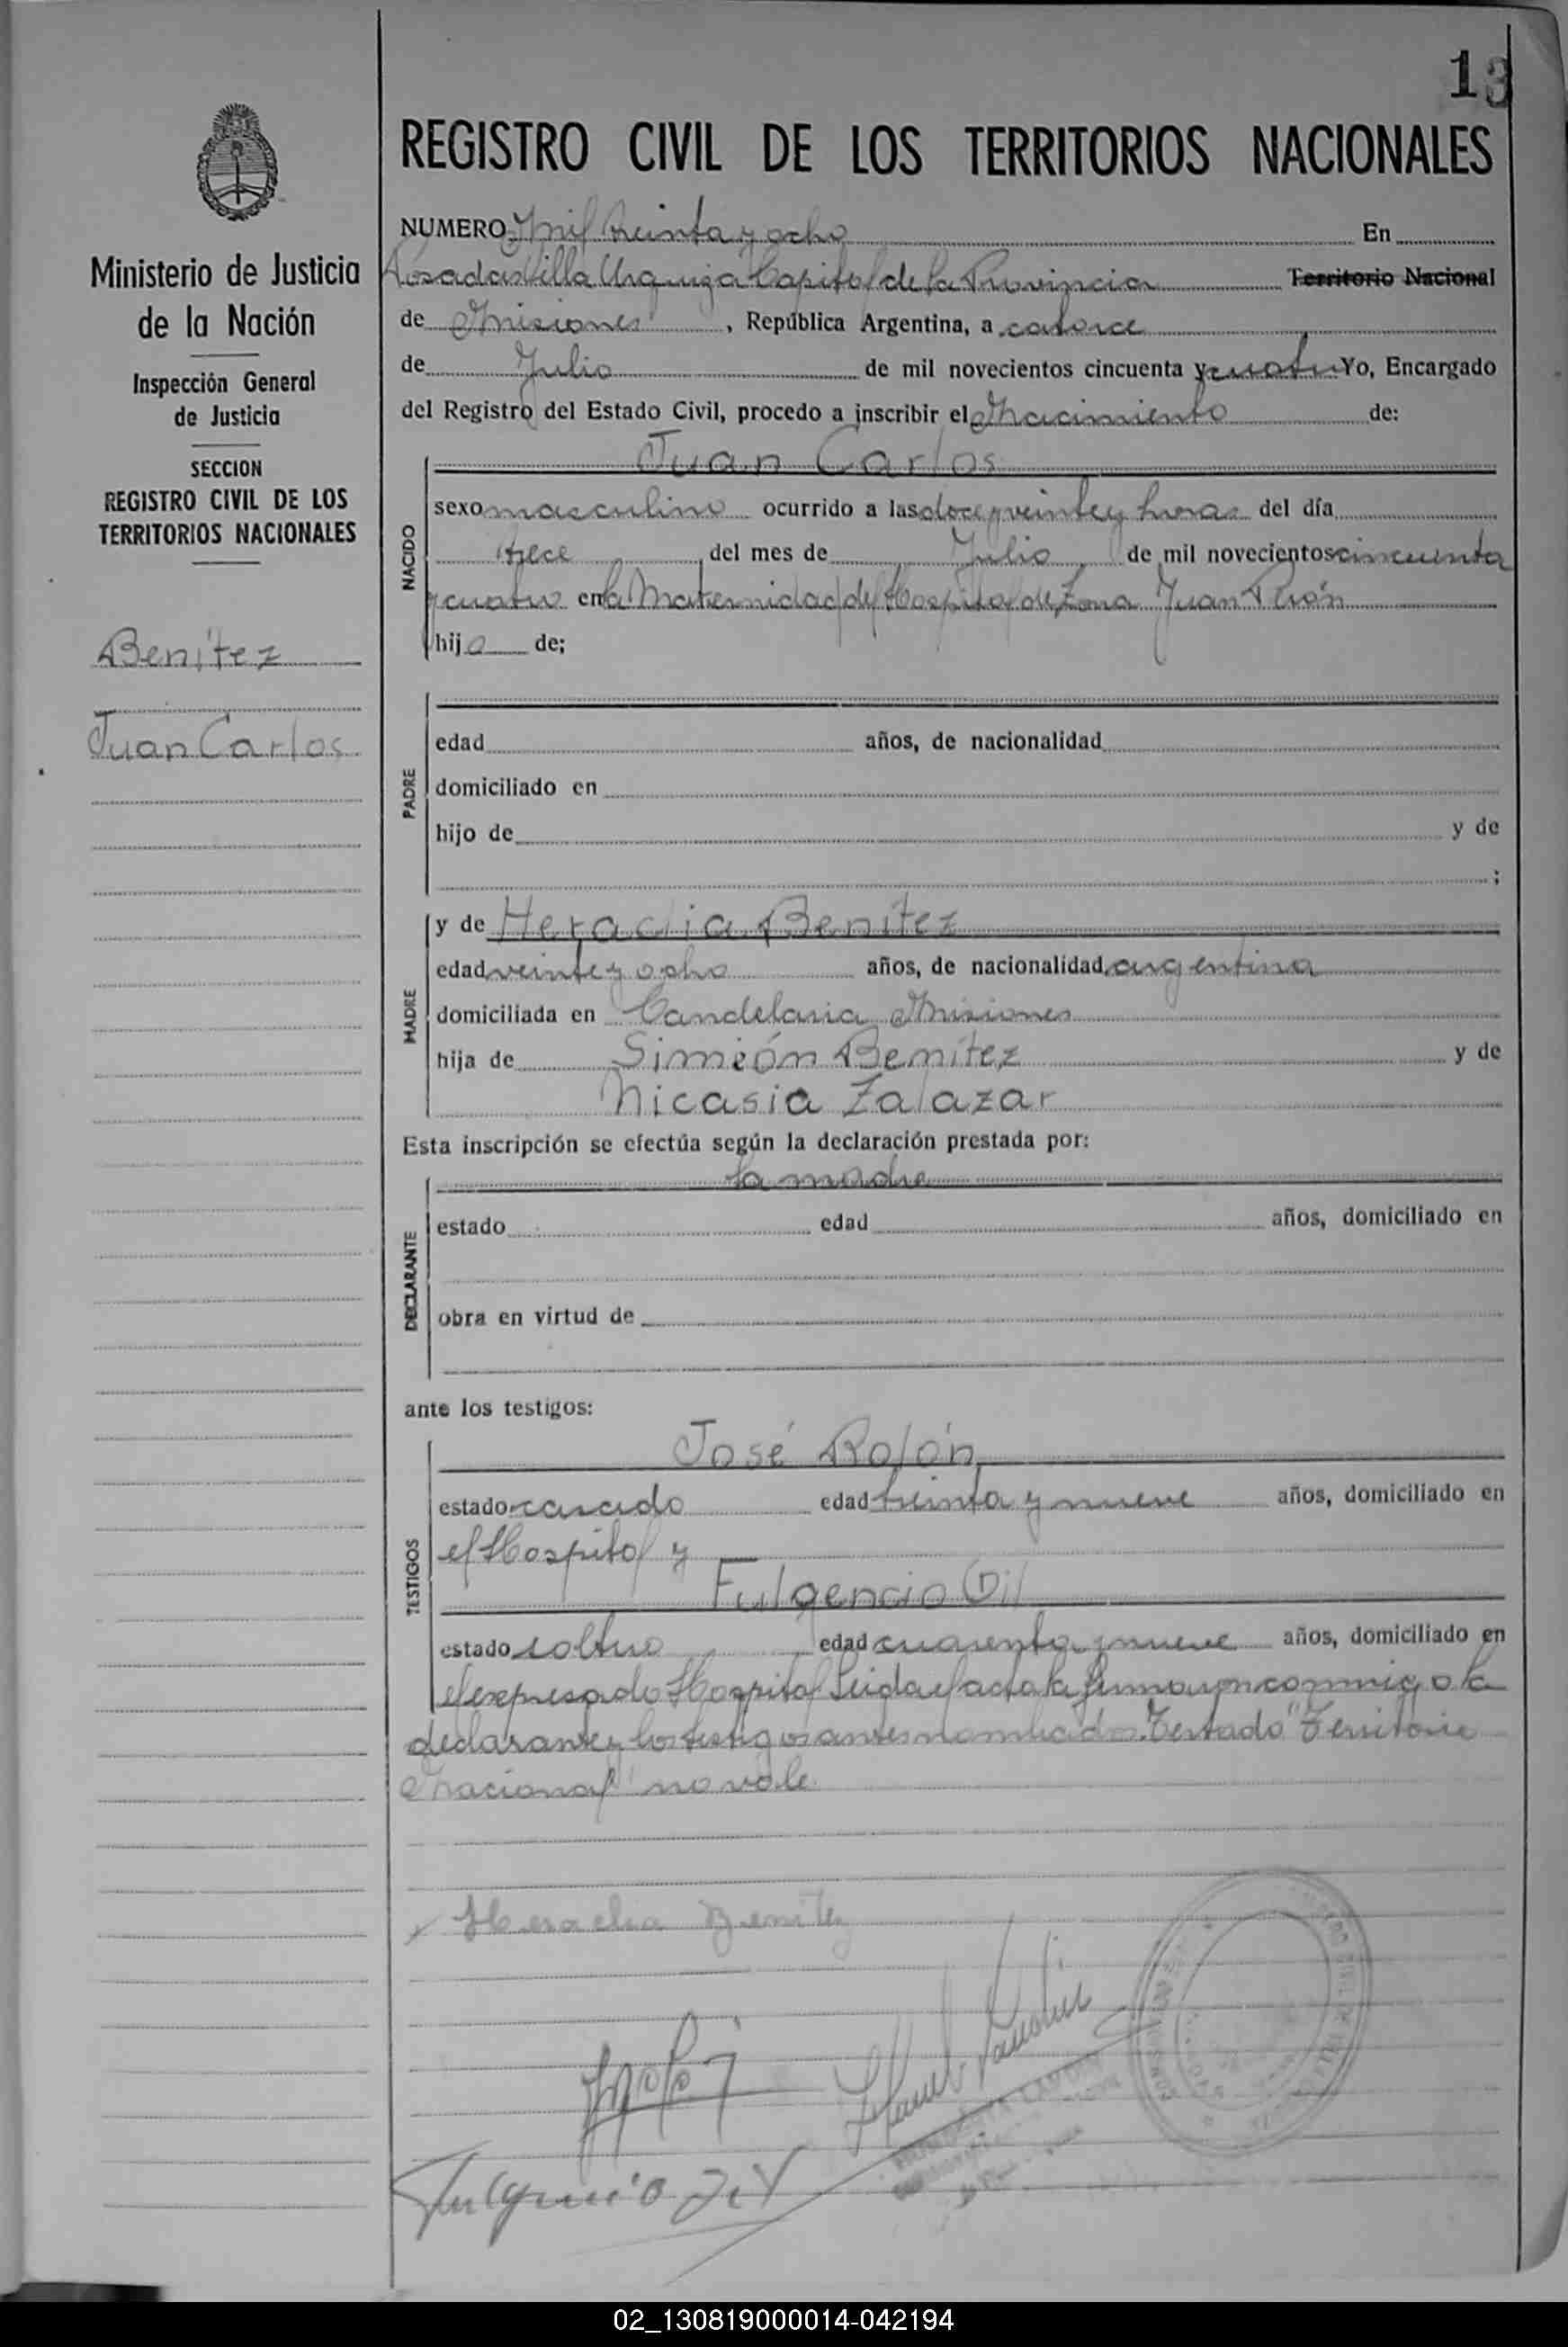 13
REGISTRO CIVIL DE LOS TERRITORIOS NACIONALES
Ministerio de Justicia
de la Nación
Inspección General
de Justicia
SECCION
REGISTRO CIVIL DE LOS
TERRITORIOS NACIONALES
Benítez
Juan Carlos
NUMERO Mil treinta y ocho En
Posadas Villa Urquiza Capital de la Provincia Territorio Nacional
de Misiones, República Argentina, a catorce
de Julio de mil novecientos cincuenta y cuatro Yo, Encargado
del Registro del Estado Civil, procedo a inscribir el Nacimiento de:
Juan Carlos
NACIDO
sexo masculino ocurrido a las doce y veinte y horas del día
trece del mes de Julio de mil novecientos cincuenta
y cuatro en la Maternidad del Hospital de Zona Juan Perón
hijo de;
PADRE
edad años, de nacionalidad
domiciliado en
hijo de y de
;
MADRE
y de Heraclia Benítez
edad veinte y ocho años, de nacionalidad argentina
domiciliada en Candelaria Misiones
hija de Simeón Benítez y de
Nicasia Zalazar
Esta inscripción se efectúa según la declaración prestada por:
la madre
DECLARANTE
estado edad años, domiciliado en
obra en virtud de
ante los testigos:
José Rolón
TESTIGOS
estado casado edad treinta y nueve años, domiciliado en
el Hospital y
Fulgencio Gil
estado soltero edad cuarenta y nueve años, domiciliado en
el expresado Hospital Leida el acta la firmaron conmigo la
declarante y los testigos antes nombrados. Testado "Territorio
Nacional" no vale.
x Heraclia Benitez
Fulgencio Gil
02_130819000014-042194